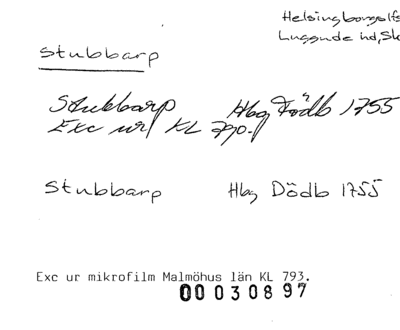 Helsingborgs lfs
Luggude hd, Sk
Stubbarp
Stubbarp Hbg Födb 1755
Exc ur KL 790.
Stubbarp Hbg Dödb 1755
Exc ur mikrofilm Malmöhus län KL 793.
0003 0897